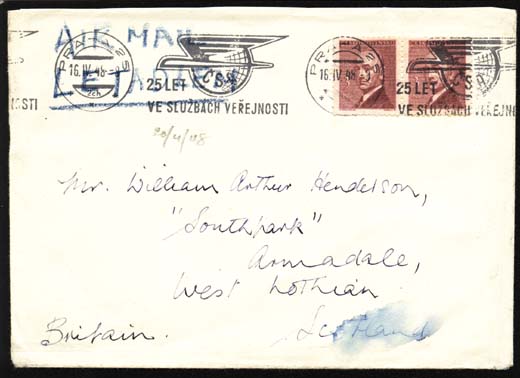 AIR MAIL
LETADLEM
PRAHA 25
16.IV.48
ČSA
25 LET
VE SLUŽBÁCH VEŘEJNOSTI
NOSTI
PRAHA 25
16.IV.48
ČSA
25 LET
VE SLUŽBÁCH VEŘEJNO
20/4/48
Mr. William Arthur Henderson,
"Southpark"
Armadale,
West Lothian
Scotland
Britain.